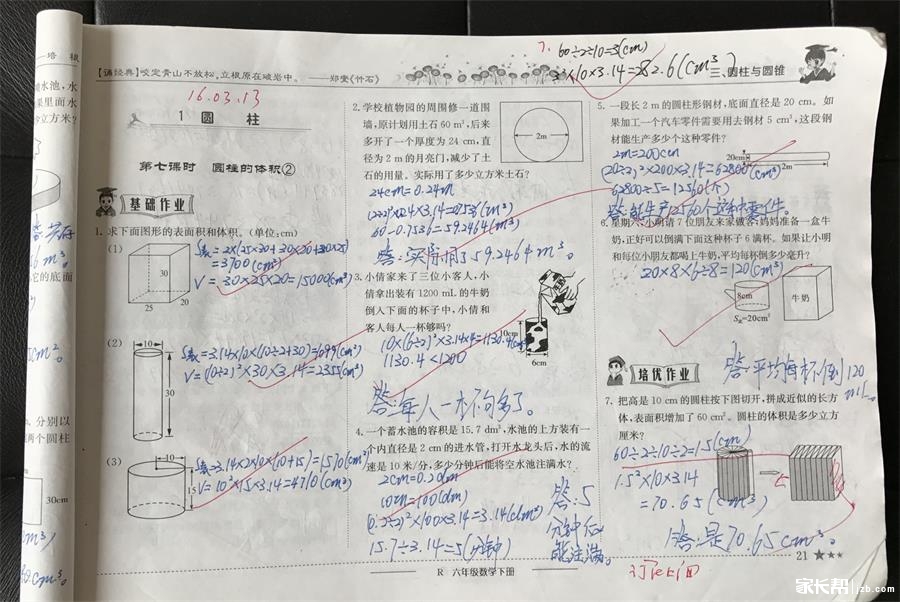 【诵经典】咬定青山不放松，立根原在破岩中。——郑燮《竹石》
7. 60÷2÷10=3(cm)
3²×10×3.14=282.6(cm³)
三、圆柱与圆锥
16.03.13
1 圆 柱
第七课时 圆柱的体积②
基础作业
1. 求下面图形的表面积和体积。(单位:cm)
(1)
S表=2×(25×30+30×20+20×25)
=3700(cm²)
V=30×25×20=15000(cm³)
30
25
20
(2)
10
30
V=(10÷2)²×30×3.14=2355(cm³)
(3)
10
15
S表=3.14×2×10×(10+15)=1570(cm²)
V=10²×15×3.14=4710(cm³)
2. 学校植物园的周围修一道围
墙,原计划用土石 60 m³,后来
多开了一个厚度为 24 cm,直
径为 2 m 的月亮门,减少了土
石的用量。实际用了多少立方米土石?
2m
24cm=0.24m
(2÷2)²×0.24×3.14=0.7536(m³)
60-0.7536=59.2464(m³)
答:实际用59.2464m³。
3. 小倩家来了三位小客人,小
倩拿出装有 1200 mL 的牛奶
倒入下面的杯子中,小倩和
客人每人一杯够吗?
10cm
6cm
1130.4<1200
答:每人一杯不够了。
4. 一个蓄水池的容积是 15.7 dm³,水池的上方装有一
个内直径是 2 cm 的进水管,打开水龙头后,水的流
速是 10 米/分,多少分钟后能将空水池注满水?
2cm=0.2dm
10m=100(dm)
(0.2÷2)²×100×3.14=3.14(dm³)
15.7÷3.14=5(分钟)
答:5
分钟后
能注满。
5. 一段长 2 m 的圆柱形钢材,底面直径是 20 cm。如
果加工一个汽车零件需要用去钢材 5 cm³,这段钢
材能生产多少个这种零件?
2m=200cm
20cm
2m
(20÷2)²×200×3.14=62800(cm³)
62800÷5=12560(个)
答:能生产12560个这种零件。
6. 星期六,小明请 7 位朋友来家做客,妈妈准备一盒牛
奶,正好可以倒满下面这种杯子 6 满杯。如果让小明
和每位小朋友都喝上牛奶,平均每杯倒多少毫升?
20×8×6÷8=120(cm³)
8cm
S底=20cm²
牛奶
答:平均每杯倒120
mL。
培优作业
7. 把高是 10 cm 的圆柱按下图切开,拼成近似的长方
体,表面积增加了 60 cm²。圆柱的体积是多少立方
厘米?
60÷2÷10÷2=1.5(cm)
1.5²×10×3.14
=70.65(cm³)
答:是70.65cm³。
21
R 六年级数学下册
家长帮 jzb.com
30cm